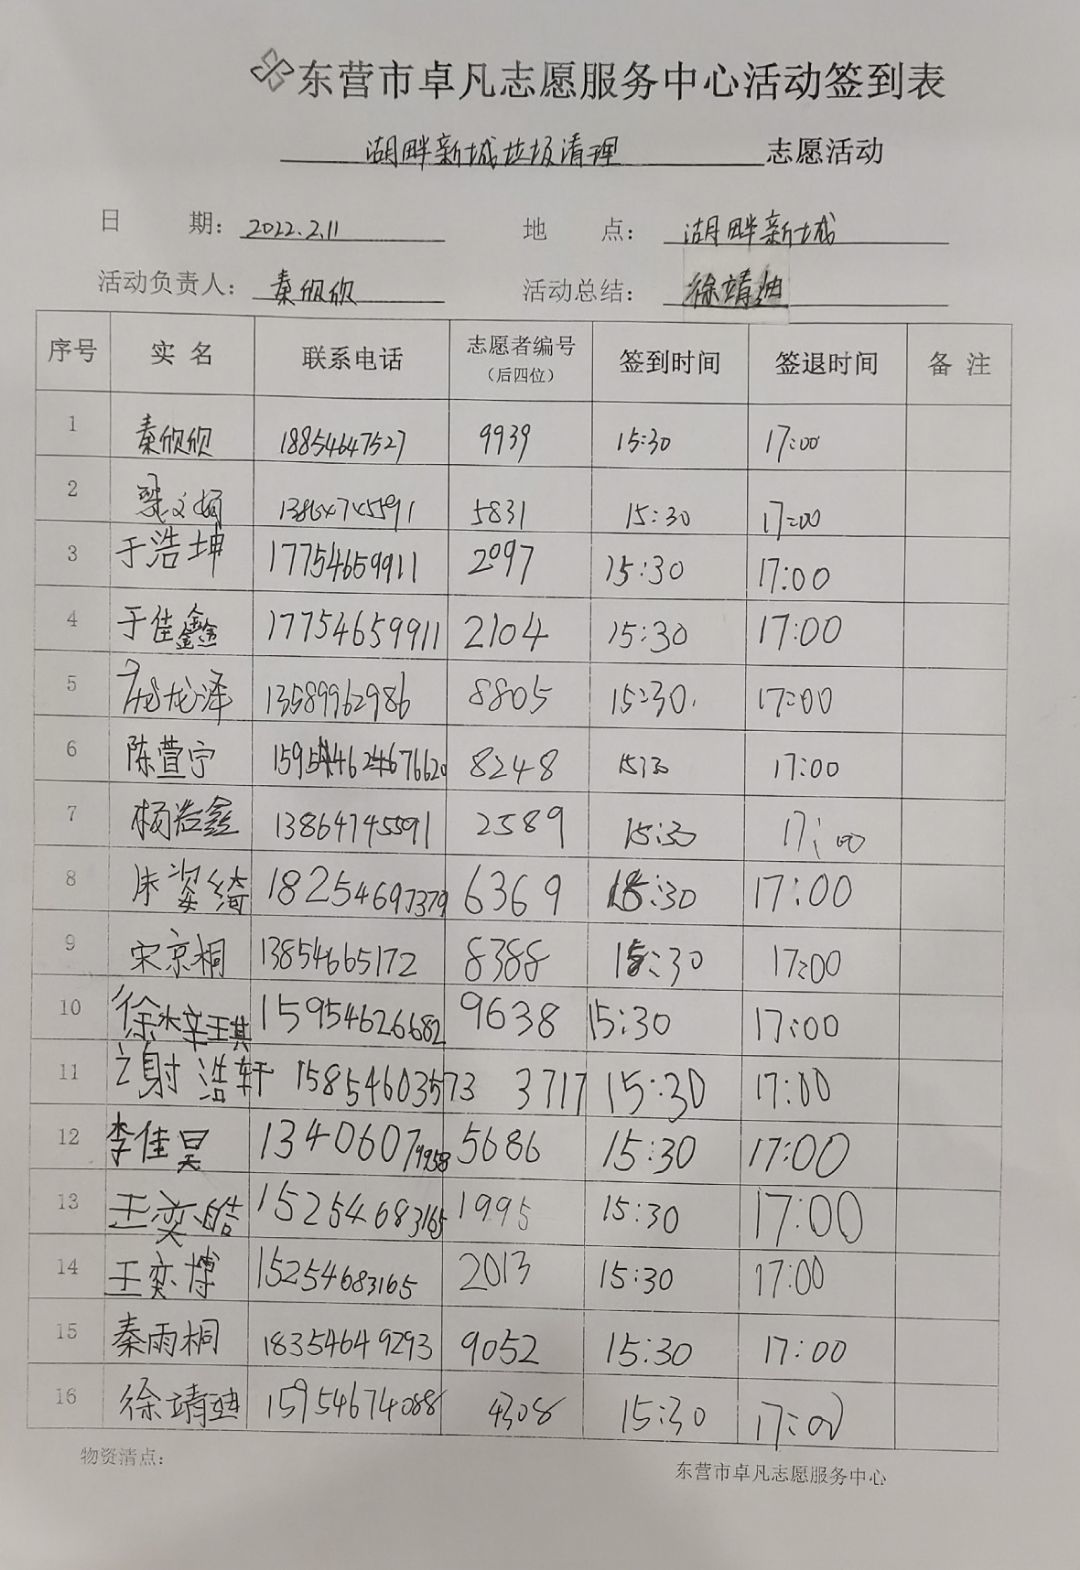 东营市卓凡志愿服务中心活动签到表
湖畔新城垃圾清理 志愿活动
日 期：2022.2.11 地 点：湖畔新城
活动负责人：秦欣欣 活动总结：徐靖迪
序号 实 名 联系电话 志愿者编号（后四位） 签到时间 签退时间 备 注
1 秦欣欣 18854647527 9939 15:30 17:00
2 梁文娟 13864745591 5831 15:30 17:00
3 于浩坤 17754659911 2097 15:30 17:00
4 于佳鑫 17754659911 2104 15:30 17:00
5 龙泽 13589962986 8805 15:30 17:00
6 陈萱宁 8248 15:30 17:00
7 杨浩鑫 13864745591 2589 15:30 17:00
8 朱姿绮 18254697379 6369 15:30 17:00
9 宋京桐 13854665172 8388 15:30 17:00
10 徐梓琪 15954626682 9638 15:30 17:00
11 谢浩轩 15854603573 3717 15:30 17:00
12 李佳昊 13406079958 5686 15:30 17:00
13 王奕皓 15254683165 1995 15:30 17:00
14 王奕博 15254683165 2013 15:30 17:00
15 秦雨桐 18354649293 9052 15:30 17:00
16 徐靖迪 15954674088 4308 15:30 17:00
物资清点： 东营市卓凡志愿服务中心